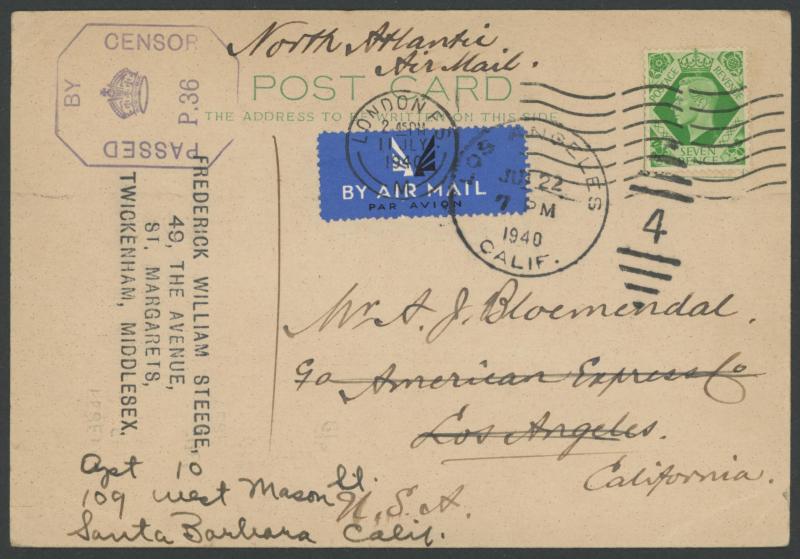 PASSED
BY
CENSOR
P.36
North Atlantic
Air Mail.
POST CARD
THE ADDRESS TO BE WRITTEN ON THIS SIDE
POSTAGE REVENUE
SEVEN
PENCE
LONDON
2.45PM
11 JLY
1940
BY AIR MAIL
PAR AVION
LOS ANGELES
JUL 22
7 PM
1940
CALIF.
4
FREDERICK WILLIAM STEEGE,
49, THE AVENUE,
ST. MARGARETS,
TWICKENHAM, MIDDLESEX.
Mr. A. J. Bloemendal.
c/o American Express Co
Los Angeles.
California.
U.S.A.
Apt 10
109 West Mason St.
Santa Barbara Calif.